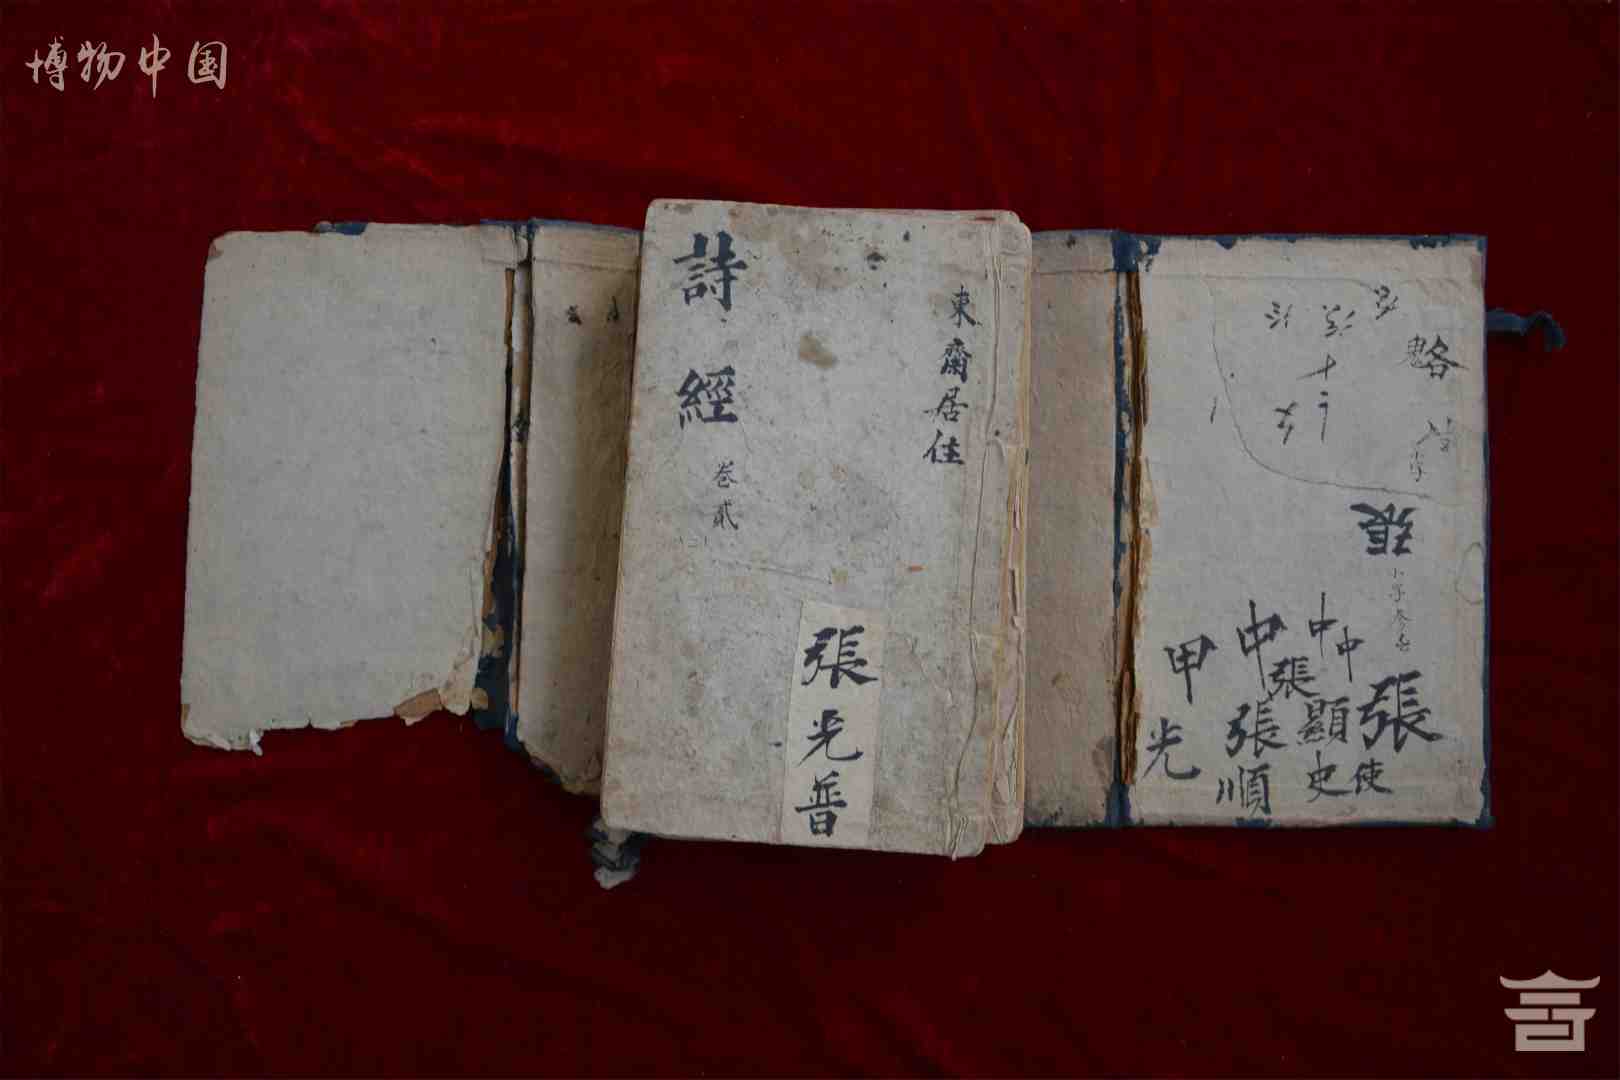 博物中国
東齋居住
詩經
卷貳
張光普
略
張
小字
中
中
申
甲
張
張
顯史
使
張順
光
十二